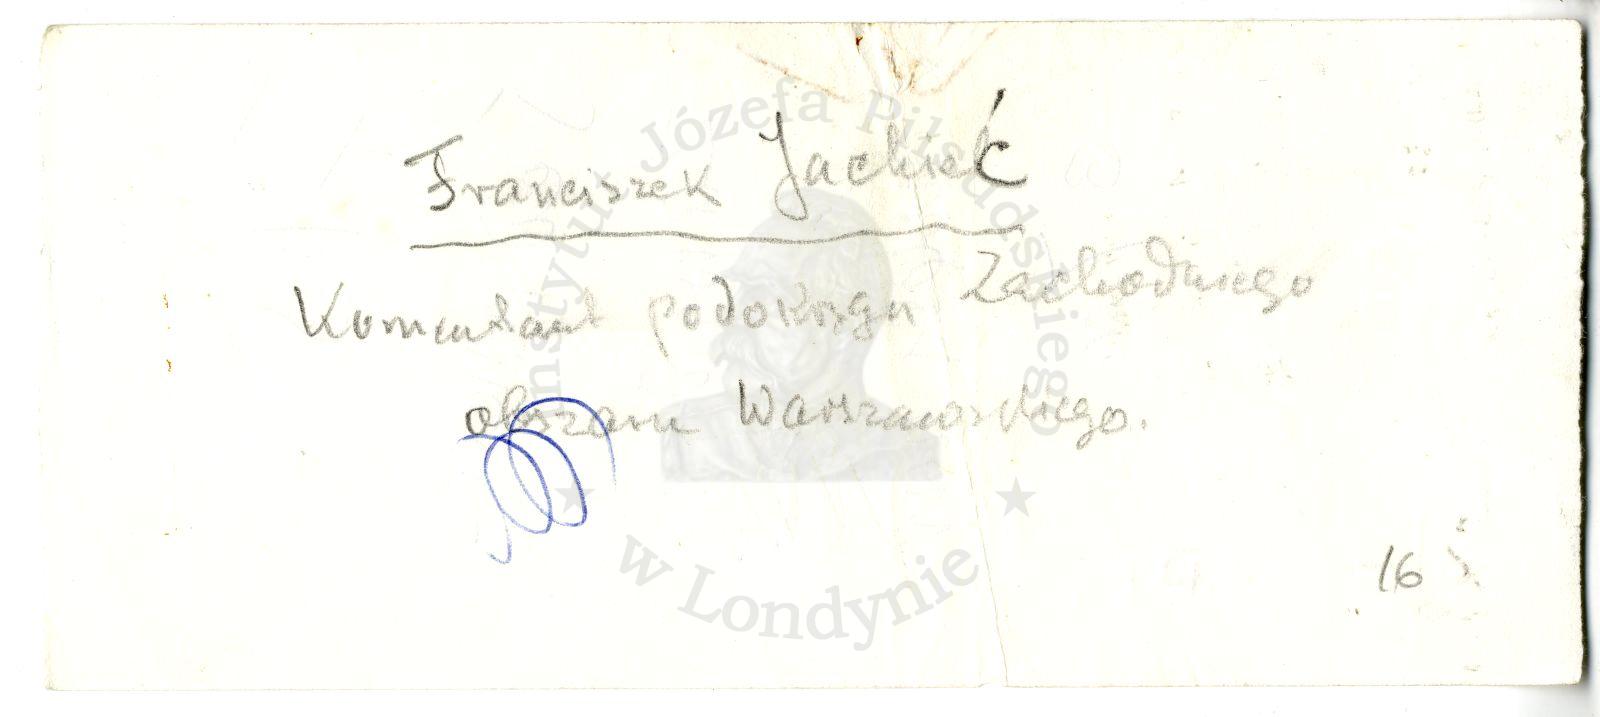 Franciszek Jachieć
Komendant podokręgu Zachodniego
obszaru Warszawskiego.
16
Instytut Józefa Piłsudskiego
w Londynie